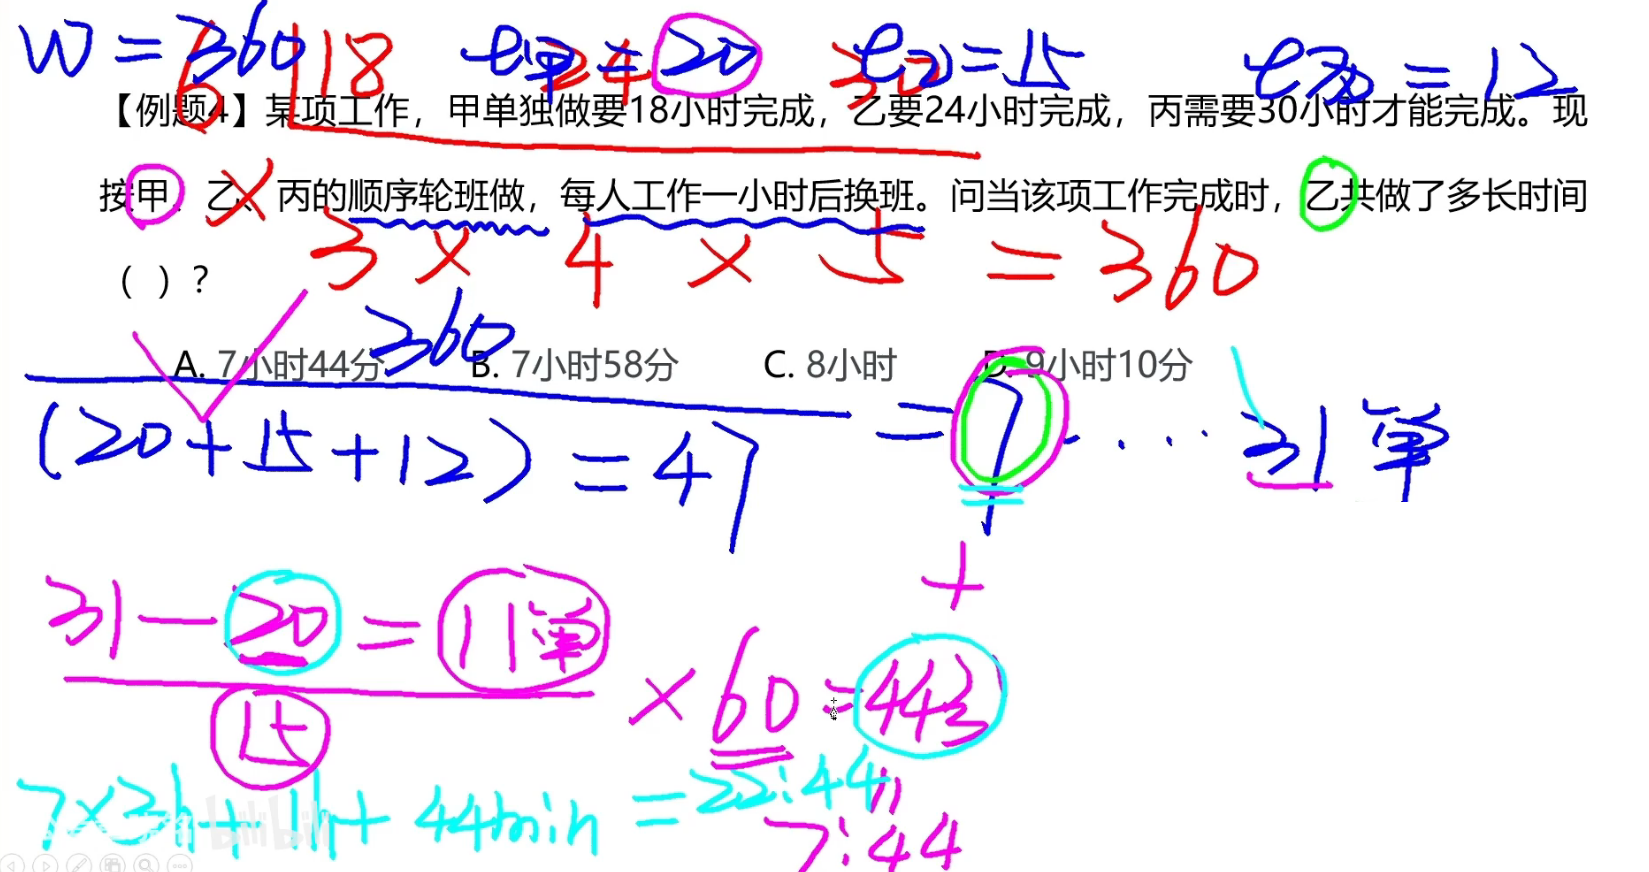 W = 360 t甲 = 20 t乙 = 15 t丙 = 12
6 18 24 30
【例题4】某项工作，甲单独做要18小时完成，乙要24小时完成，丙需要30小时才能完成。现
按甲、乙、丙的顺序轮班做，每人工作一小时后换班。问当该项工作完成时，乙共做了多长时间
× 3 × 4 × 5 = 360
（ ）？
360
A. 7小时44分 B. 7小时58分 C. 8小时 D. 9小时10分
(20+15+12) = 47 = 7 ⋯ 31单
+
31 - 20 = 11单
15 × 60 = 44分
7×3h + 1h + 44min = 22:44
7:44
bilibili